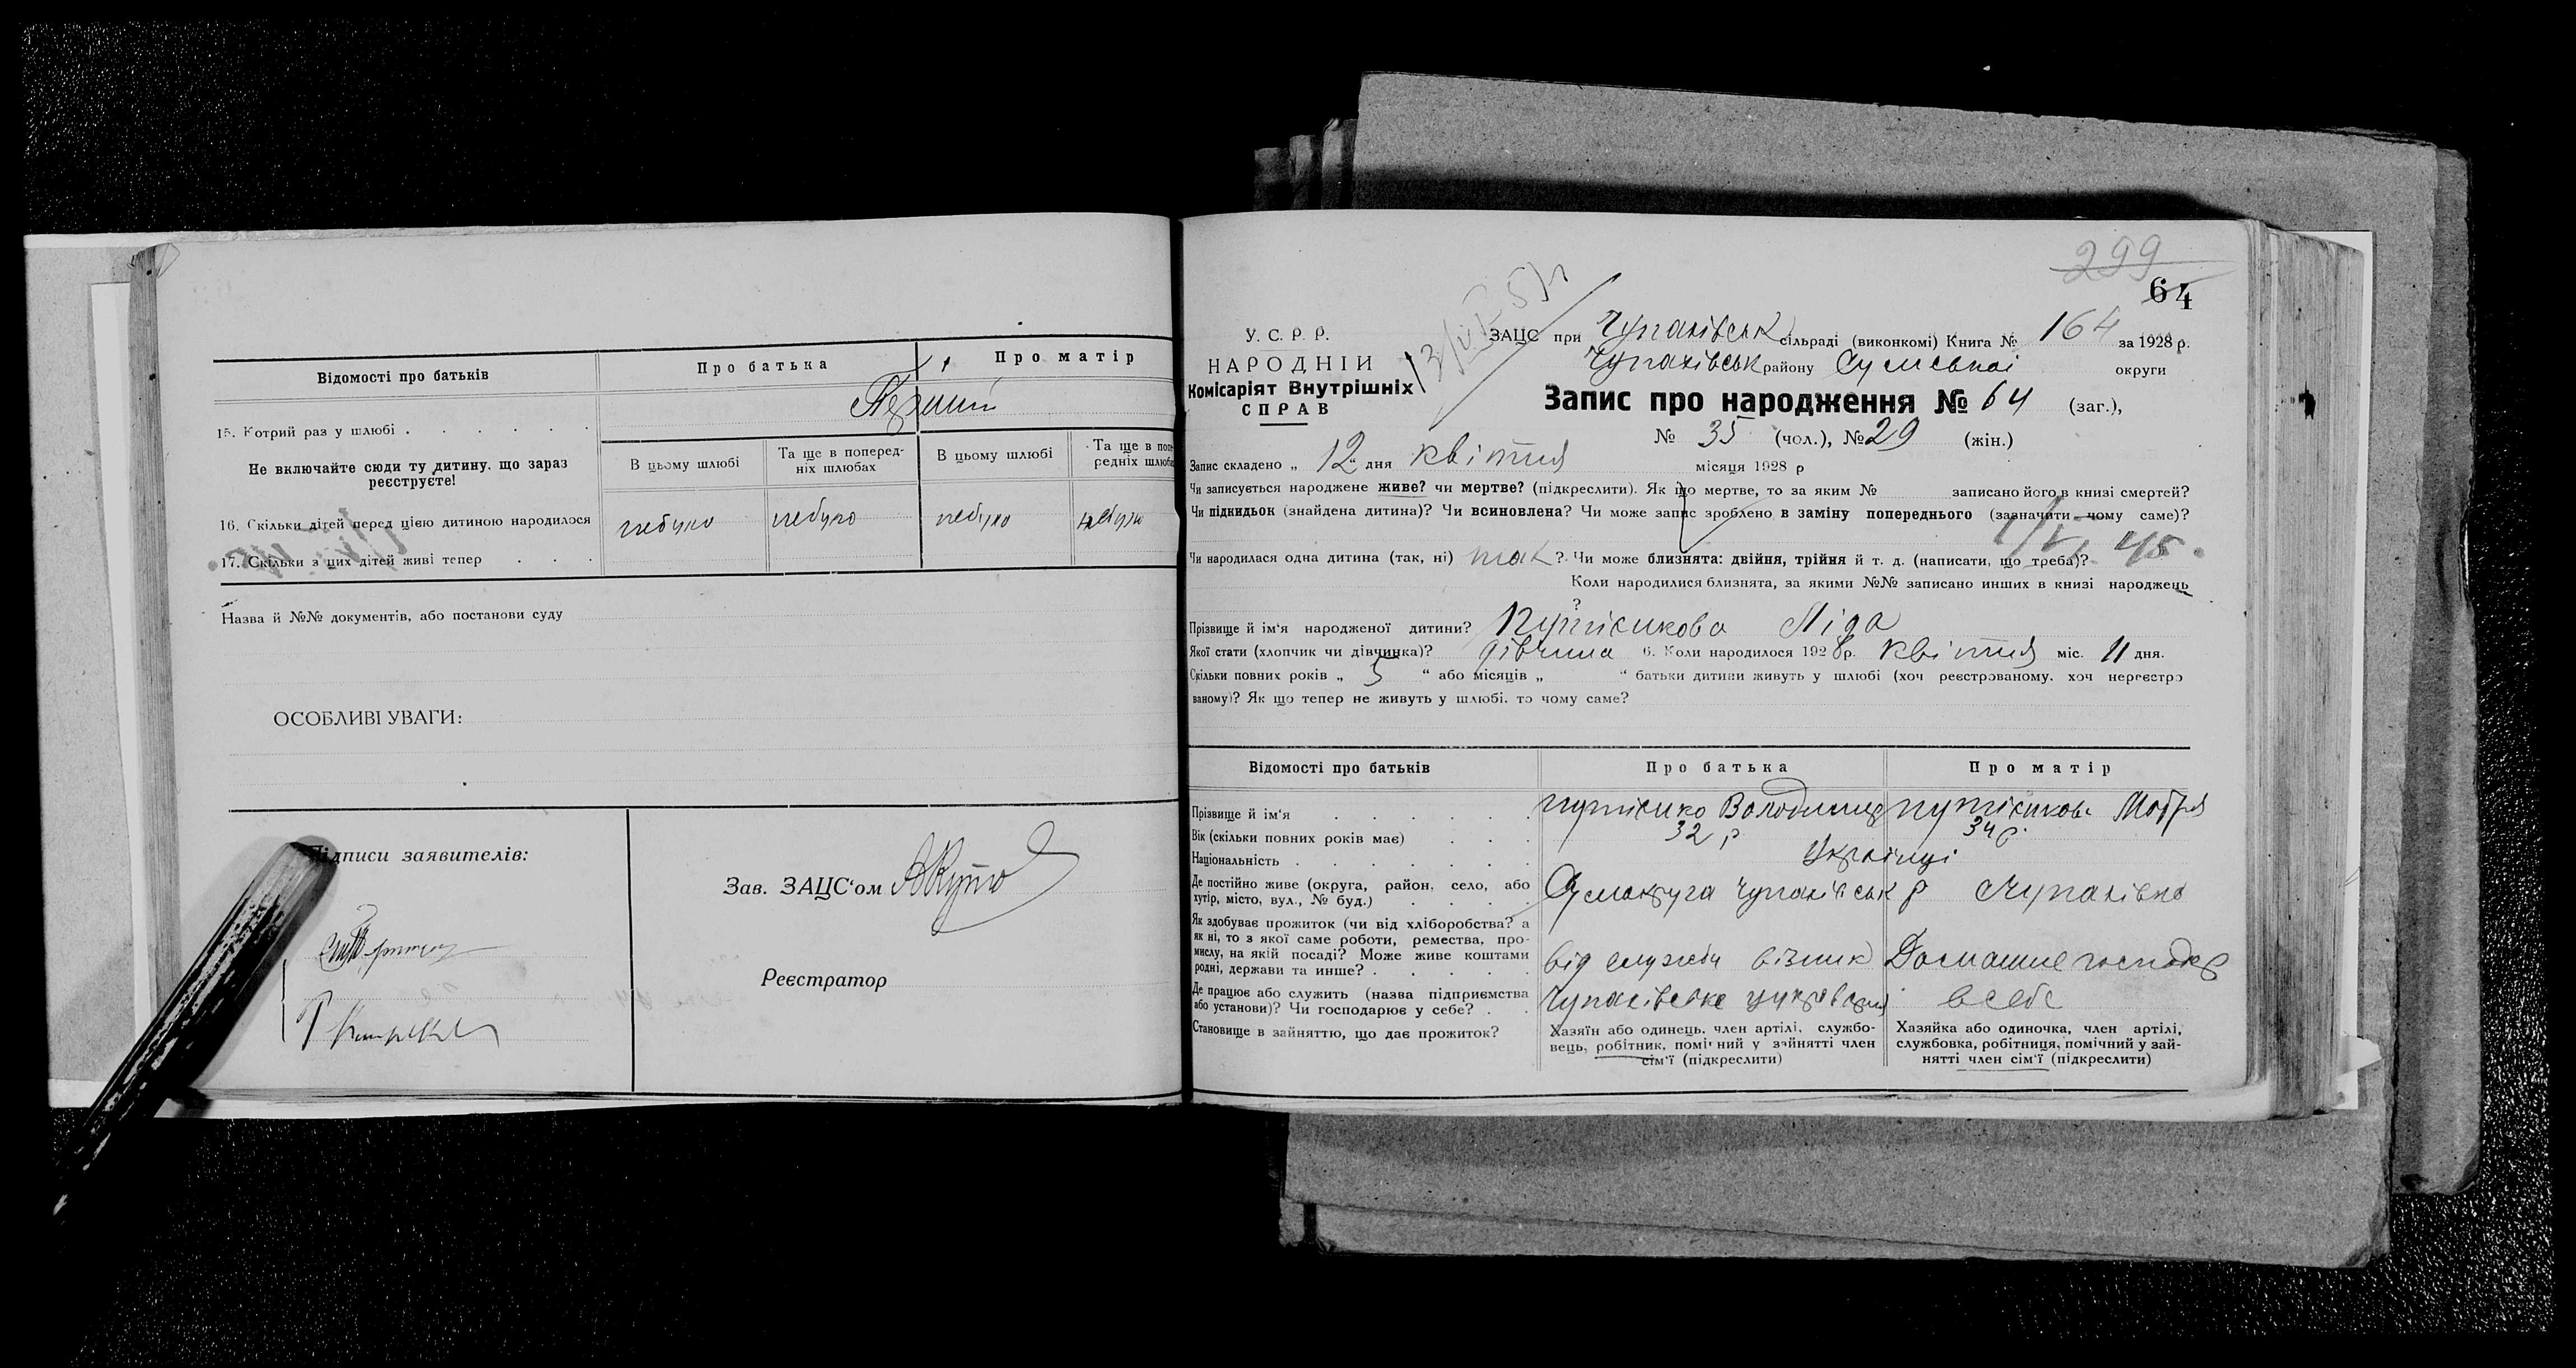 Відомості про батьків
Про батька
Про матір
15. Котрий раз у шлюбі
Перший
Не включайте сюди ту дитину, що зараз реєструєте!
В цьому шлюбі
Та ще в поперед-
ніх шлюбах
В цьому шлюбі
Та ще в попе-
редніх шлюбах
16. Скільки дітей перед цією дитиною народилося
небуло
небуло
небуло
небуло
17. Скільки з цих дітей живі тепер
Назва й №№ документів, або постанови суду
ОСОБЛИВІ УВАГИ:
Підписи заявителів:
Зав. ЗАЦС‘ом
Реєстратор
299
64
У. С. Р. Р.
НАРОДНІЙ
Комісаріят Внутрішніх
СПРАВ
ЗАЦС при Чупахівськ сільраді (виконкомі) Книга № 164 за 1928 р.
Чупахівськ району Сумської округи
Запис про народження № 64 (заг.),
№ 35 (чол.), № 29 (жін.)
Запис складено „ 12 “ дня квітня місяця 1928 р
Чи записується народжене живе? чи мертве? (підкреслити). Як що мертве, то за яким № записано його в книзі смертей?
Чи підкидьок (знайдена дитина)? Чи всиновлена? Чи може запис зроблено в заміну попереднього (зазначити чому саме)?
Чи народилася одна дитина (так, ні) так ?. Чи може близнята: двійня, трійня й т. д. (написати, що треба)?
Коли народилися близнята, за якими №№ записано инших в книзі народжень
?
Прізвище й ім‘я народженої дитини? Ліда
Якої стати (хлопчик чи дівчинка)? дівчина 6. Коли народилося 1928 р. квітня міс. 11 дня.
Скільки повних років „ 5 “ або місяців „ “ батьки дитини живуть у шлюбі (хоч реєстрованому, хоч нереєстро
ваному)? Як що тепер не живуть у шлюбі, то чому саме?
Відомості про батьків
Про батька
Про матір
Прізвище й ім‘я
Володимир
Мотря
Вік (скільки повних років має)
32 р
34 р.
Національність
Українці
Де постійно живе (округа, район, село, або
хутір, місто, вул., № буд.)
Сумокруга Чупахівськ р Чупахівка
Як здобуває прожиток (чи від хліборобства? а
як ні, то з якої саме роботи, ремества, про-
мислу, на якій посаді? Може живе коштами
родні, держави та инше?
від служби візник
Домашнє господар
Де працює або служить (назва підприємства
або установи)? Чи господарює у себе?
Чупахівське цукроварня
в себе
Становище в зайняттю, що дає прожиток?
Хазяїн або одинець, член артілі, службо-
вець, робітник, помічний у зайнятті член
сім‘ї (підкреслити)
Хазяйка або одиночка, член артілі,
службовка, робітниця, помічний у зай-
нятті член сім‘ї (підкреслити)